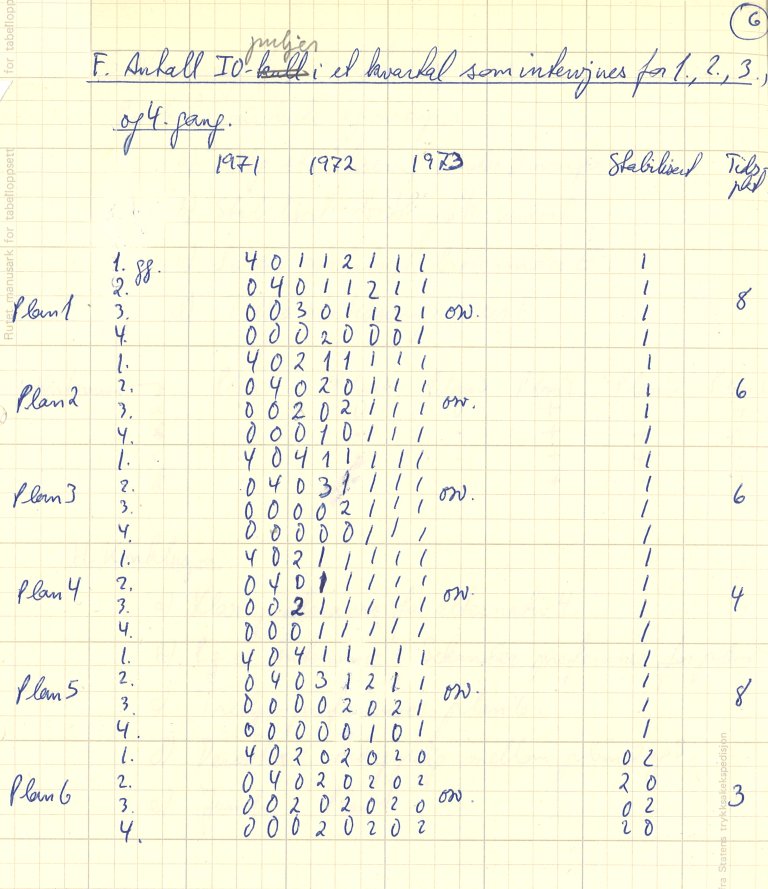 6
puljer
F. Antall IO-kull i et kvartal som intervjues for 1., 2., 3.,
og 4. gang.
1971 1972 1973 Stabilisert Tids-
pkt
1. gg. 4 0 1 1 2 1 1 1 1
2. 0 4 0 1 1 2 1 1 1
Plan 1 3. 0 0 3 0 1 1 2 1 osv. 1 8
4. 0 0 0 2 0 0 0 1 1
1. 4 0 2 1 1 1 1 1 1
2. 0 4 0 2 0 1 1 1 1 6
Plan 2 3. 0 0 2 0 2 1 1 1 osv. 1
4. 0 0 0 1 0 1 1 1 1
1. 4 0 4 1 1 1 1 1 1
2. 0 4 0 3 1 1 1 1 1
Plan 3 3. 0 0 0 0 2 1 1 1 osv. 1 6
4. 0 0 0 0 0 1 1 1 1
1. 4 0 2 1 1 1 1 1 1
2. 0 4 0 1 1 1 1 1 1
Plan 4 3. 0 0 2 1 1 1 1 1 osv. 1 4
4. 0 0 0 1 1 1 1 1 1
1. 4 0 4 1 1 1 1 1 1
2. 0 4 0 3 1 2 1 1 1
Plan 5 3. 0 0 0 0 2 0 2 1 osv. 1 8
4. 0 0 0 0 0 1 0 1 1
1. 4 0 2 0 2 0 2 0 0 2
2. 0 4 0 2 0 2 0 2 2 0
Plan 6 3. 0 0 2 0 2 0 2 0 osv. 0 2 3
4. 0 0 0 2 0 2 0 2 2 0
for tabellopp
Rutet manusark for tabelloppsett
fra Statens trykksakekspedisjon